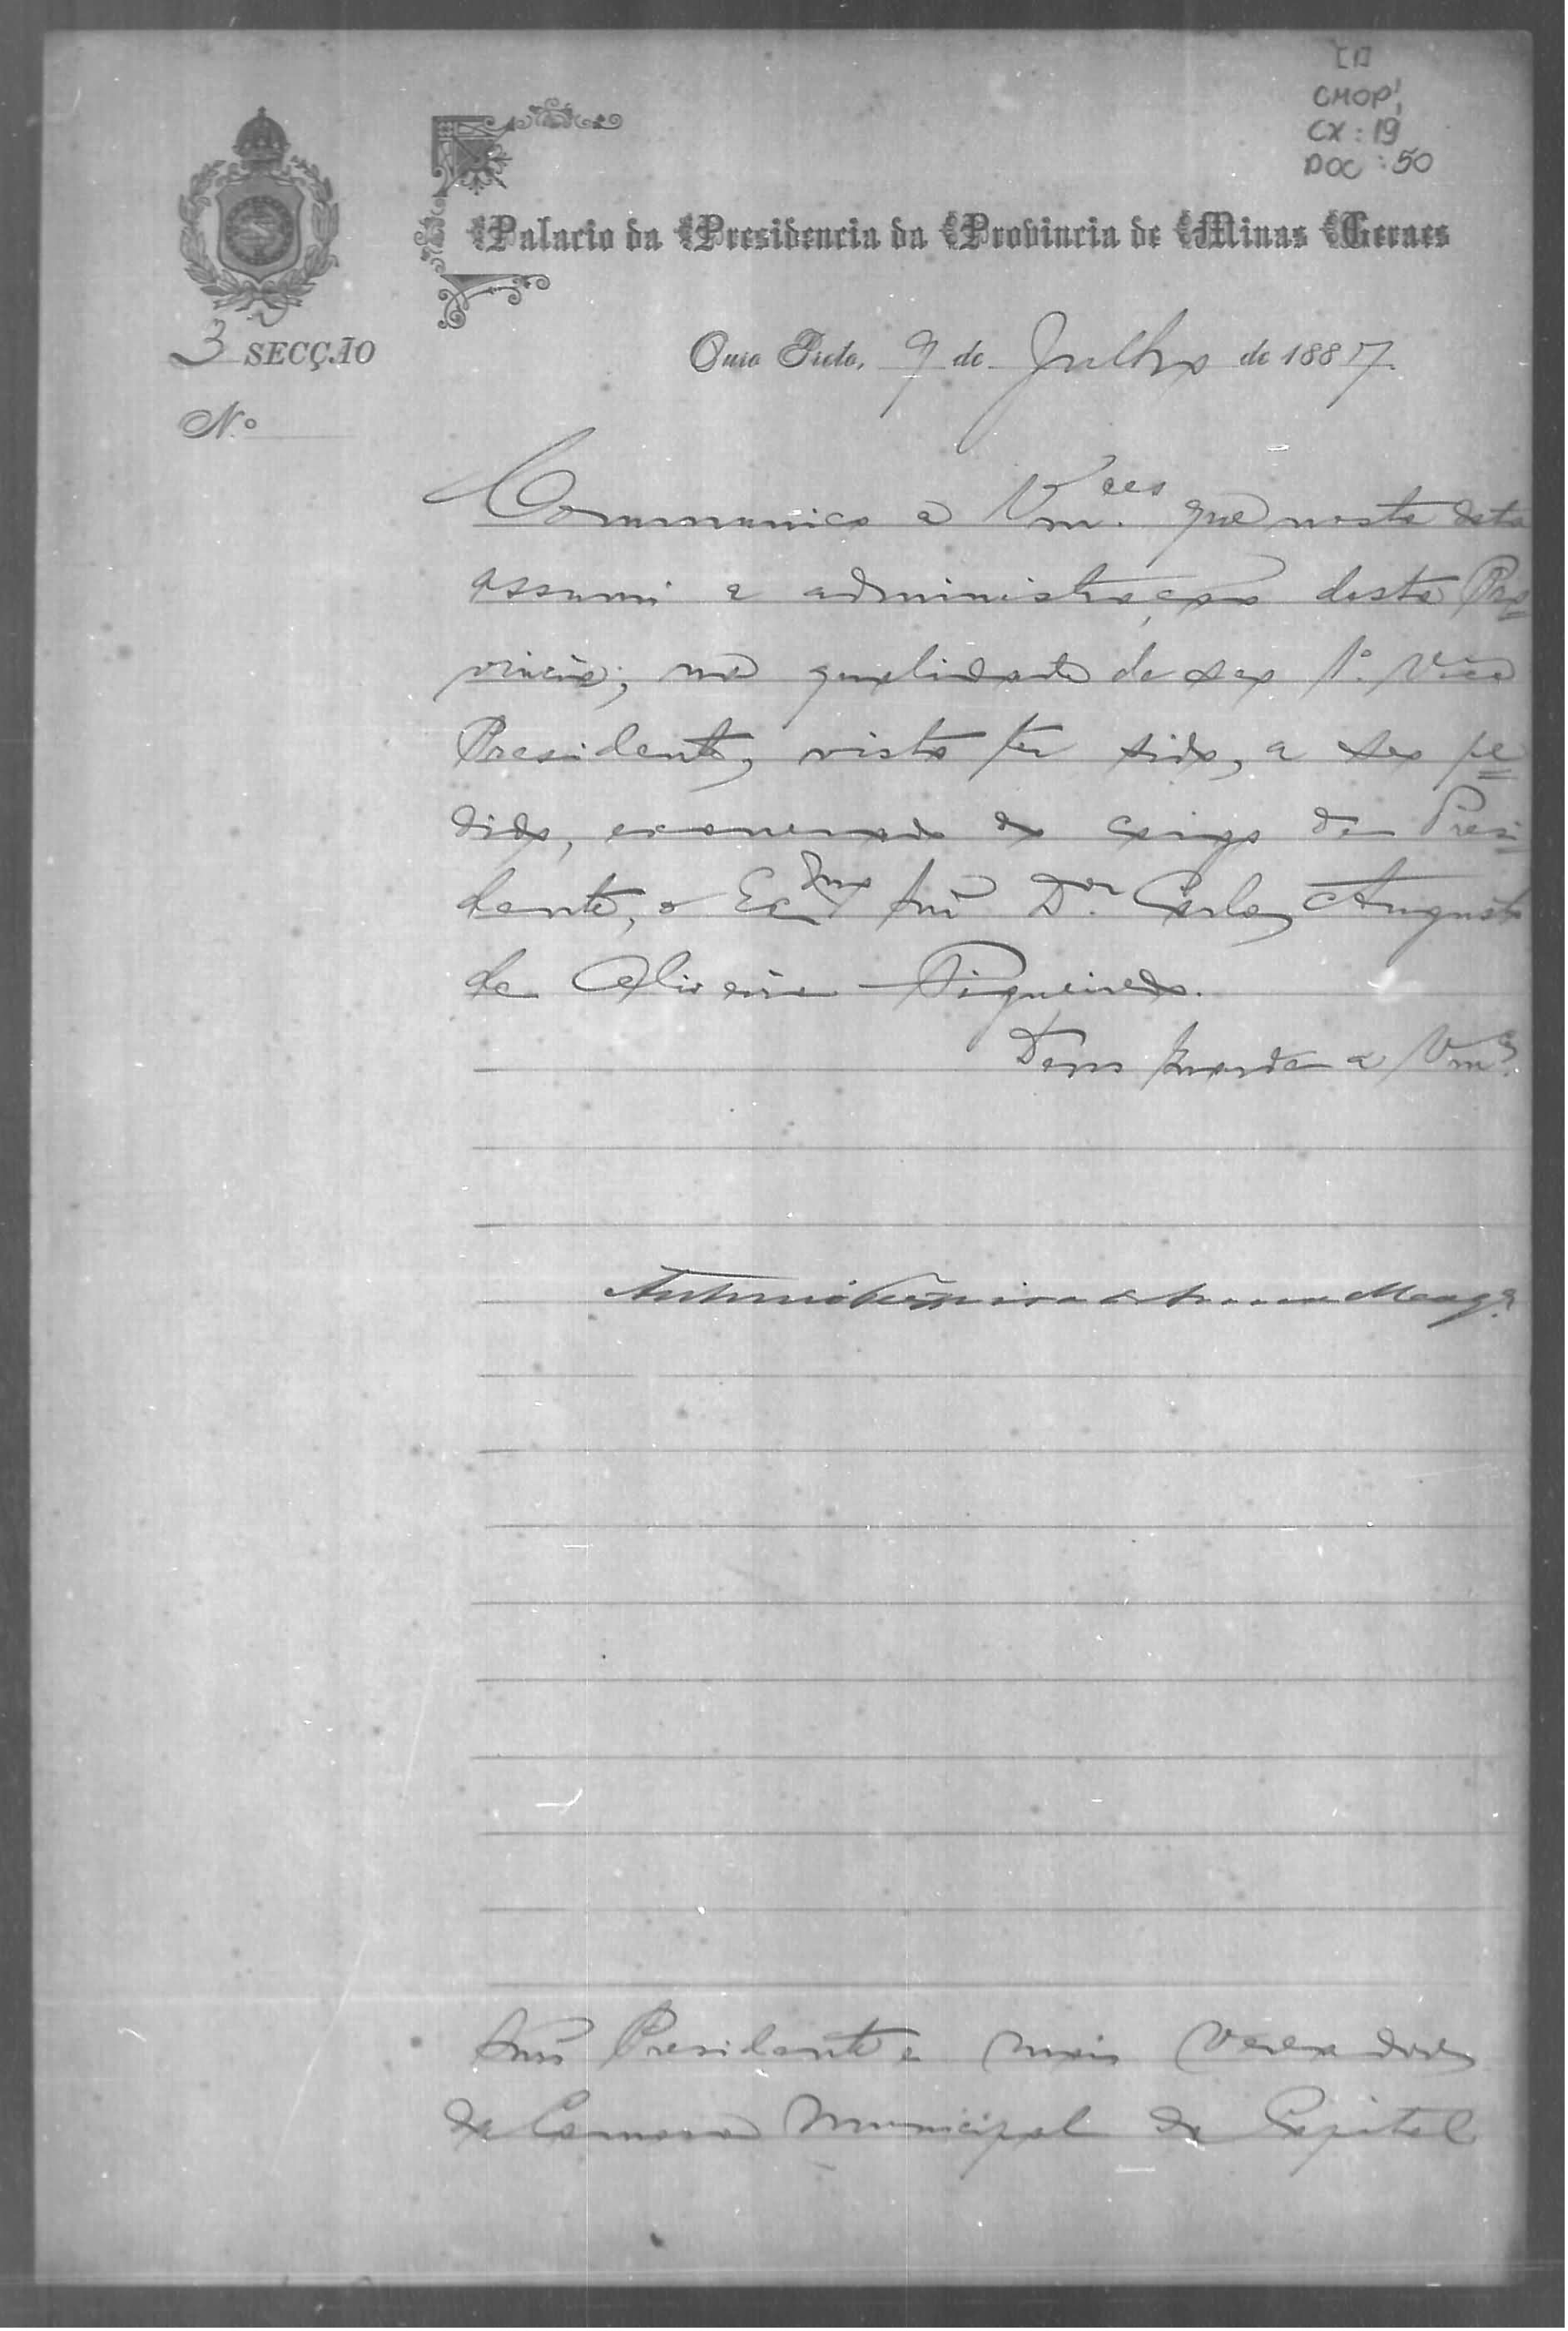 [1]
CMOP
CX: 19
DOC: 50
Palacio da Presidencia da Provincia de Minas Geraes
3ª SECÇÃO
Ouro Preto, 9 de Julho de 1887
Nº
Communico a Vm.ces que nesta data
assumi a administração desta Pro
vincia, na qualidade de seu 1º Vice
Presidente, visto ter sido, a seu pe
dido, exonerado do cargo de Presi
dente, o Exmo Snr Dor Carlos Augusto
de Oliveira Figueiredo.
Deus Guarde a Vmces
Antonio Teixeira de Souza Mages
Snrs Presidente e mais Vereadores
da Camara Municipal da Capital